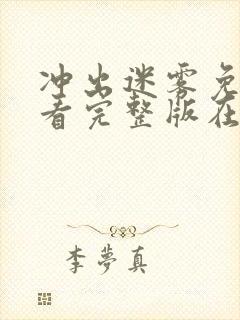 冲出迷雾免
看完整版在
李夢真